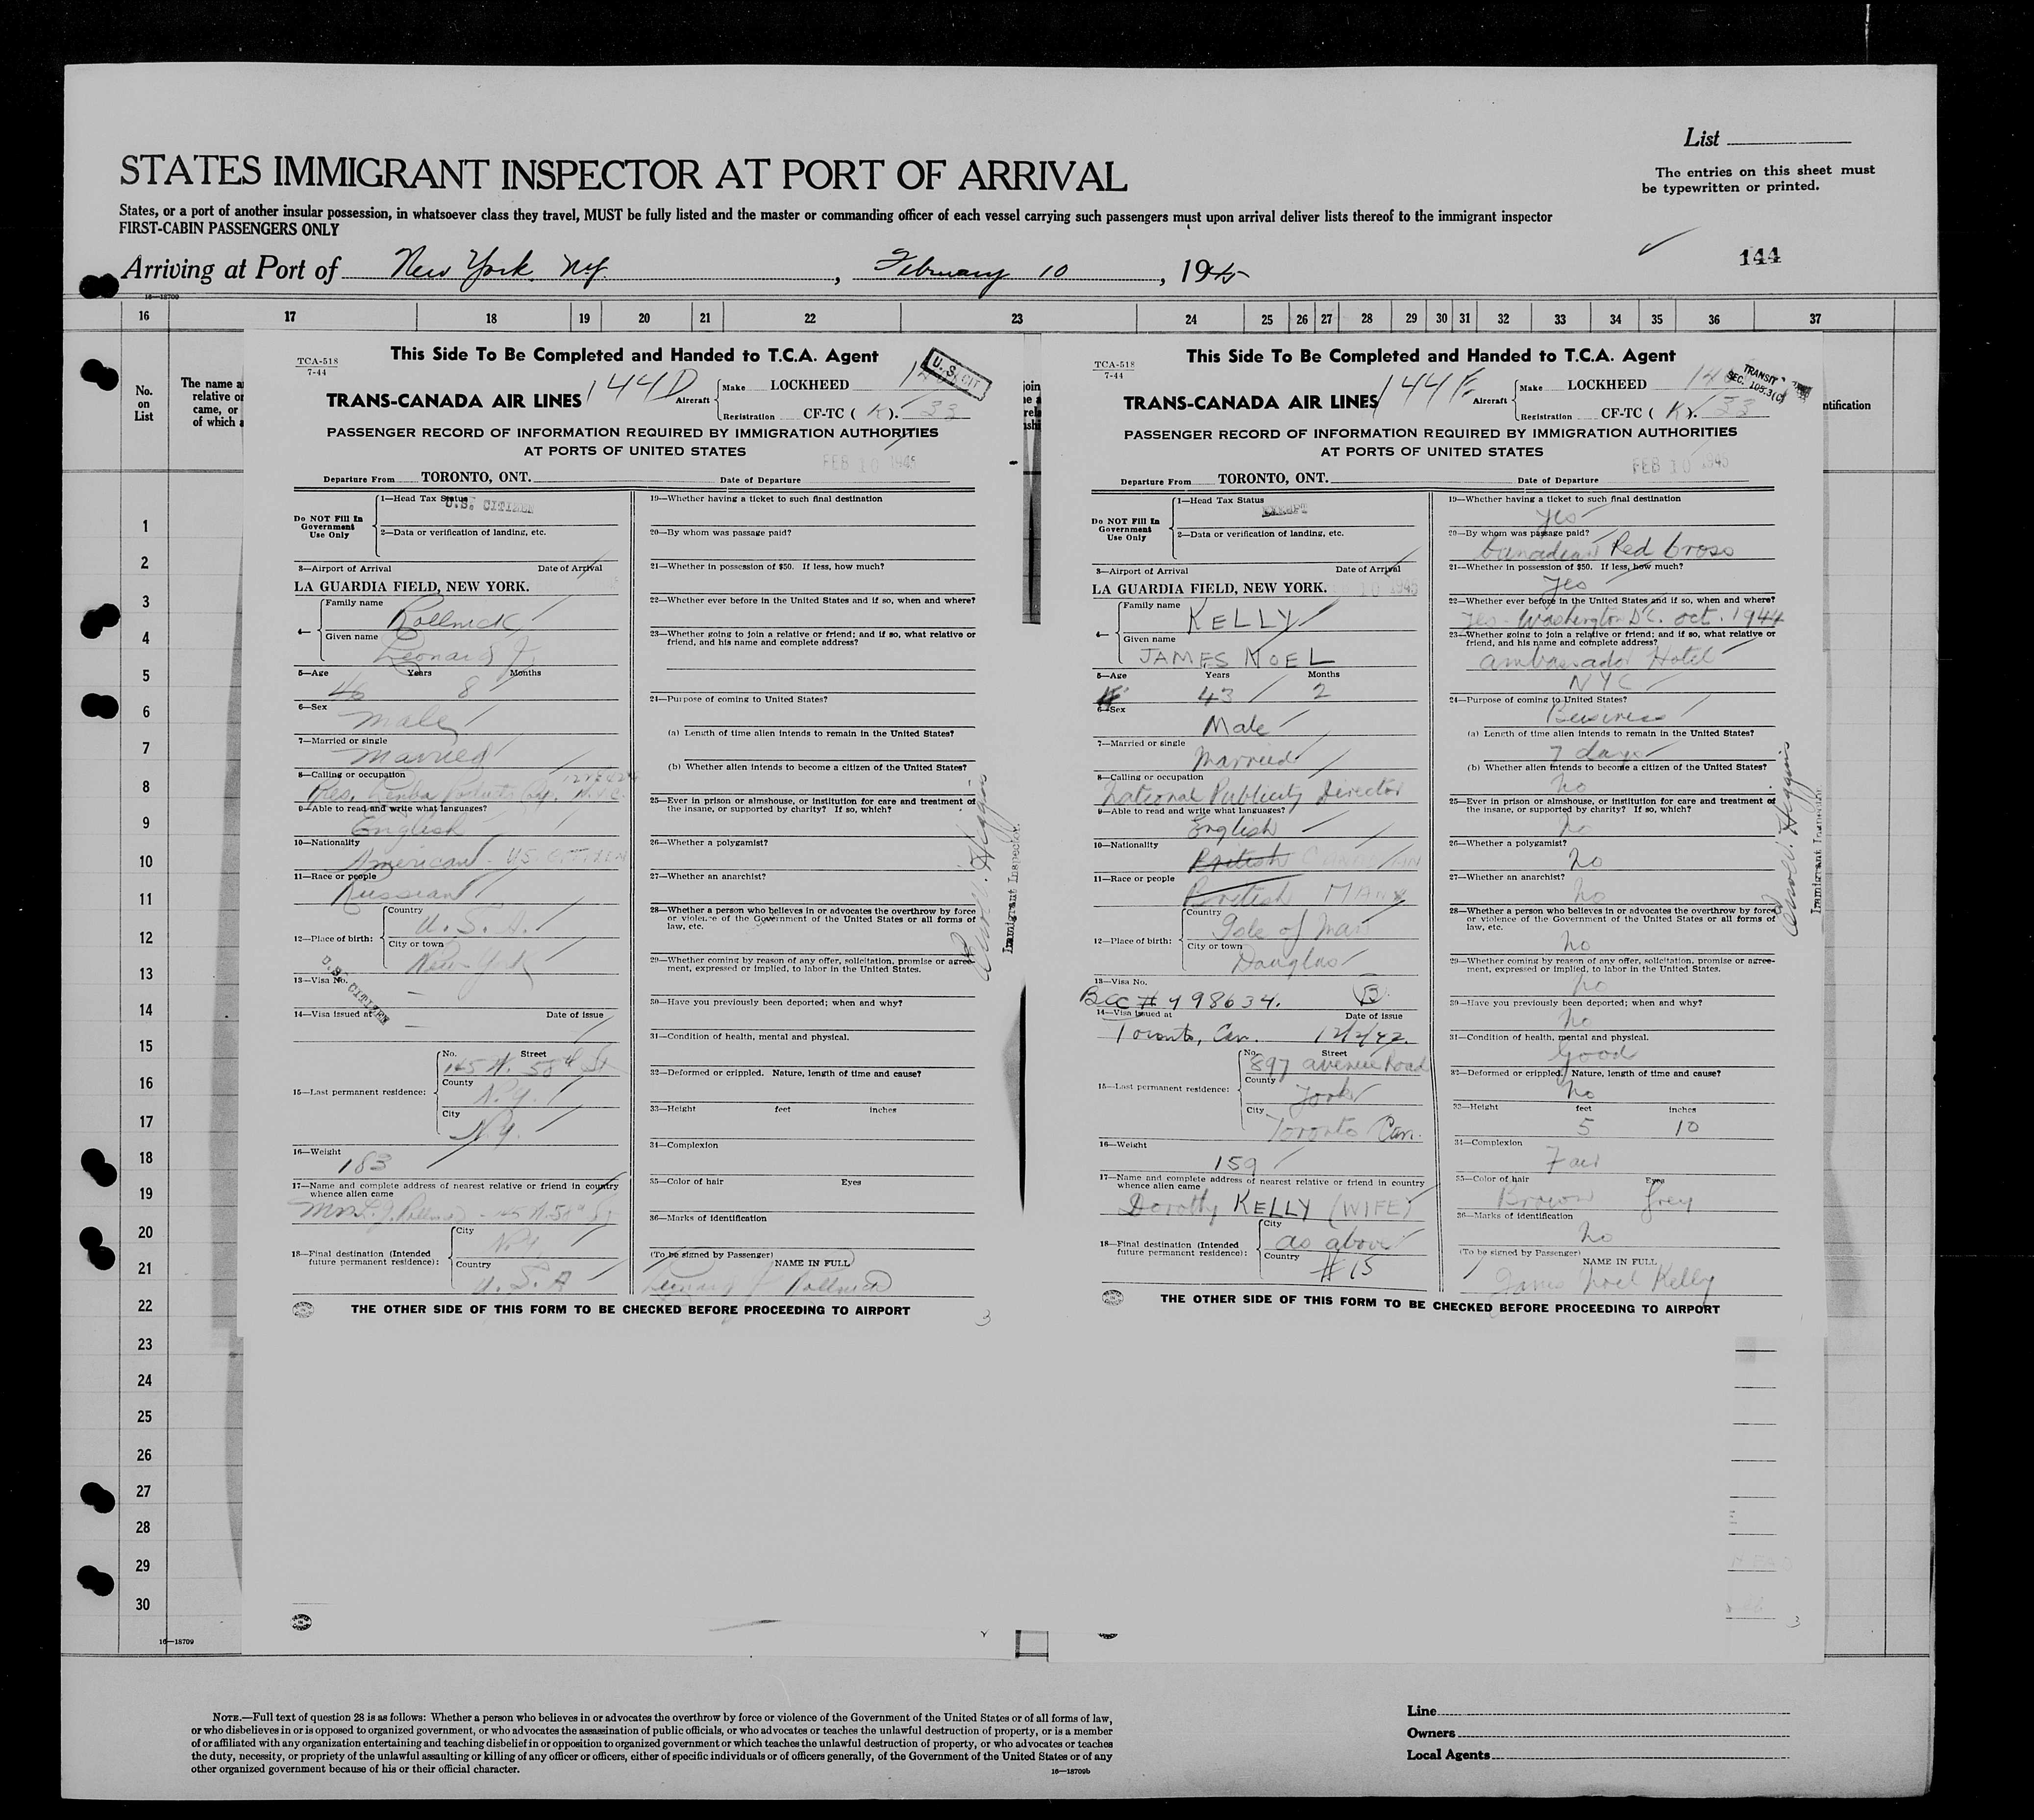 List
The entries on this sheet must
be typewritten or printed.
STATES IMMIGRANT INSPECTOR AT PORT OF ARRIVAL
States, or a port of another insular possession, in whatsoever class they travel, MUST be fully listed and the master or commanding officer of each vessel carrying such passengers must upon arrival deliver lists thereof to the immigrant inspector
FIRST-CABIN PASSENGERS ONLY
144
Arriving at Port of New York, N.Y., February 10, 1945
16—18709
16 17 18 19 20 21 22 23 24 25 26 27 28 29 30 31 32 33 34 35 36 37
No.
on
List
The name a
relative or
came, or
of which a
join
ntification
1
2
3
4
5
6
7
8
9
10
11
12
13
14
15
16
17
18
19
20
21
22
23
24
25
26
27
28
29
30
16—18709
TCA-518
7-44
This Side To Be Completed and Handed to T.C.A. Agent
U. S. CIT
TRANS-CANADA AIR LINES 144D Aircraft
Make LOCKHEED
Registration CF-TC ( K ). 33
PASSENGER RECORD OF INFORMATION REQUIRED BY IMMIGRATION AUTHORITIES
AT PORTS OF UNITED STATES
FEB 10 1945
Departure From TORONTO, ONT. Date of Departure
Do NOT Fill In
Government
Use Only
1—Head Tax Status
U.S. CITIZEN
2—Data or verification of landing, etc.
3—Airport of Arrival Date of Arrival
LA GUARDIA FIELD, NEW YORK.
4—
Family name
Rollnick
Given name
Leonard J.
5—Age Years Months
46 8
6—Sex
Male
7—Married or single
Married
8—Calling or occupation
Pres. N.Y.C.
9—Able to read and write what languages?
English
10—Nationality
American - US CITIZEN
11—Race or people
Russian
12—Place of birth:
Country
U. S. A.
City or town
New York
13—Visa No.
—
U.S. CITIZEN
14—Visa issued at Date of issue
—
15—Last permanent residence:
No. Street
145 W. 58th St
County
N.Y.
City
N.Y.
16—Weight
183
17—Name and complete address of nearest relative or friend in country
whence alien came
Mrs L. J. Rollnick - 145 W. 58th St
18—Final destination (Intended
future permanent residence):
City
N.Y.
Country
U. S. A
19—Whether having a ticket to such final destination
20—By whom was passage paid?
21—Whether in possession of $50. If less, how much?
22—Whether ever before in the United States and if so, when and where?
23—Whether going to join a relative or friend; and if so, what relative or
friend, and his name and complete address?
24—Purpose of coming to United States?
(a) Length of time alien intends to remain in the United States?
(b) Whether alien intends to become a citizen of the United States?
25—Ever in prison or almshouse, or institution for care and treatment of
the insane, or supported by charity? If so, which?
26—Whether a polygamist?
27—Whether an anarchist?
28—Whether a person who believes in or advocates the overthrow by force
or violence of the Government of the United States or all forms of
law, etc.
29—Whether coming by reason of any offer, solicitation, promise or agree-
ment, expressed or implied, to labor in the United States.
30—Have you previously been deported; when and why?
31—Condition of health, mental and physical.
32—Deformed or crippled. Nature, length of time and cause?
33—Height feet inches
34—Complexion
35—Color of hair Eyes
36—Marks of identification
(To be signed by Passenger) NAME IN FULL
Leonard J Rollnick
Immigrant Inspector.
THE OTHER SIDE OF THIS FORM TO BE CHECKED BEFORE PROCEEDING TO AIRPORT
3
TCA-518
7-44
This Side To Be Completed and Handed to T.C.A. Agent
TRANSIT
SEC. 105.3(c)
TRANS-CANADA AIR LINES 144E Aircraft
Make LOCKHEED 14
Registration CF-TC ( K ). 33
PASSENGER RECORD OF INFORMATION REQUIRED BY IMMIGRATION AUTHORITIES
AT PORTS OF UNITED STATES
FEB 10 1945
Departure From TORONTO, ONT. Date of Departure
Do NOT Fill In
Government
Use Only
1—Head Tax Status
EXEMPT
2—Data or verification of landing, etc.
3—Airport of Arrival Date of Arrival
LA GUARDIA FIELD, NEW YORK. FEB 10 1945
4—
Family name
KELLY
Given name
JAMES NOEL
5—Age Years Months
43 2
6—Sex
Male
7—Married or single
Married
8—Calling or occupation
National Publicity Director
9—Able to read and write what languages?
English
10—Nationality
British CANADIAN
11—Race or people
British MANX
12—Place of birth:
Country
Isle of Man
City or town
Douglas
13—Visa No.
BCC # 498634. B
14—Visa issued at Date of issue
Toronto, Can. 12/2/42.
15—Last permanent residence:
No. Street
897 Avenue Road
County
York
City
Toronto Can.
16—Weight
159
17—Name and complete address of nearest relative or friend in country
whence alien came
Dorothy KELLY (WIFE)
18—Final destination (Intended
future permanent residence):
City
as above
Country
# 15
19—Whether having a ticket to such final destination
Yes
20—By whom was passage paid?
Canadian Red Cross
21—Whether in possession of $50. If less, how much?
Yes
22—Whether ever before in the United States and if so, when and where?
Yes - Washington D.C. Oct. 1944
23—Whether going to join a relative or friend; and if so, what relative or
friend, and his name and complete address?
Ambassador Hotel
NYC
24—Purpose of coming to United States?
Business
(a) Length of time alien intends to remain in the United States?
7 days
(b) Whether alien intends to become a citizen of the United States?
No
25—Ever in prison or almshouse, or institution for care and treatment of
the insane, or supported by charity? If so, which?
No
26—Whether a polygamist?
No
27—Whether an anarchist?
No
28—Whether a person who believes in or advocates the overthrow by force
or violence of the Government of the United States or all forms of
law, etc.
No
29—Whether coming by reason of any offer, solicitation, promise or agree-
ment, expressed or implied, to labor in the United States.
No
30—Have you previously been deported; when and why?
No
31—Condition of health, mental and physical.
Good
32—Deformed or crippled. Nature, length of time and cause?
No
33—Height feet inches
5 10
34—Complexion
Fair
35—Color of hair Eyes
Brown Grey
36—Marks of identification
No
(To be signed by Passenger) NAME IN FULL
James Noel Kelly
Immigrant Inspector
THE OTHER SIDE OF THIS FORM TO BE CHECKED BEFORE PROCEEDING TO AIRPORT
3
NOTE.—Full text of question 28 is as follows: Whether a person who believes in or advocates the overthrow by force or violence of the Government of the United States or of all forms of law,
or who disbelieves in or is opposed to organized government, or who advocates the assassination of public officials, or who advocates or teaches the unlawful destruction of property, or is a member
of or affiliated with any organization entertaining and teaching disbelief in or opposition to organized government or which teaches the unlawful destruction of property, or who advocates or teaches
the duty, necessity, or propriety of the unlawful assaulting or killing of any officer or officers, either of specific individuals or of officers generally, of the Government of the United States or of any
other organized government because of his or their official character.
16—18709b
Line
Owners
Local Agents